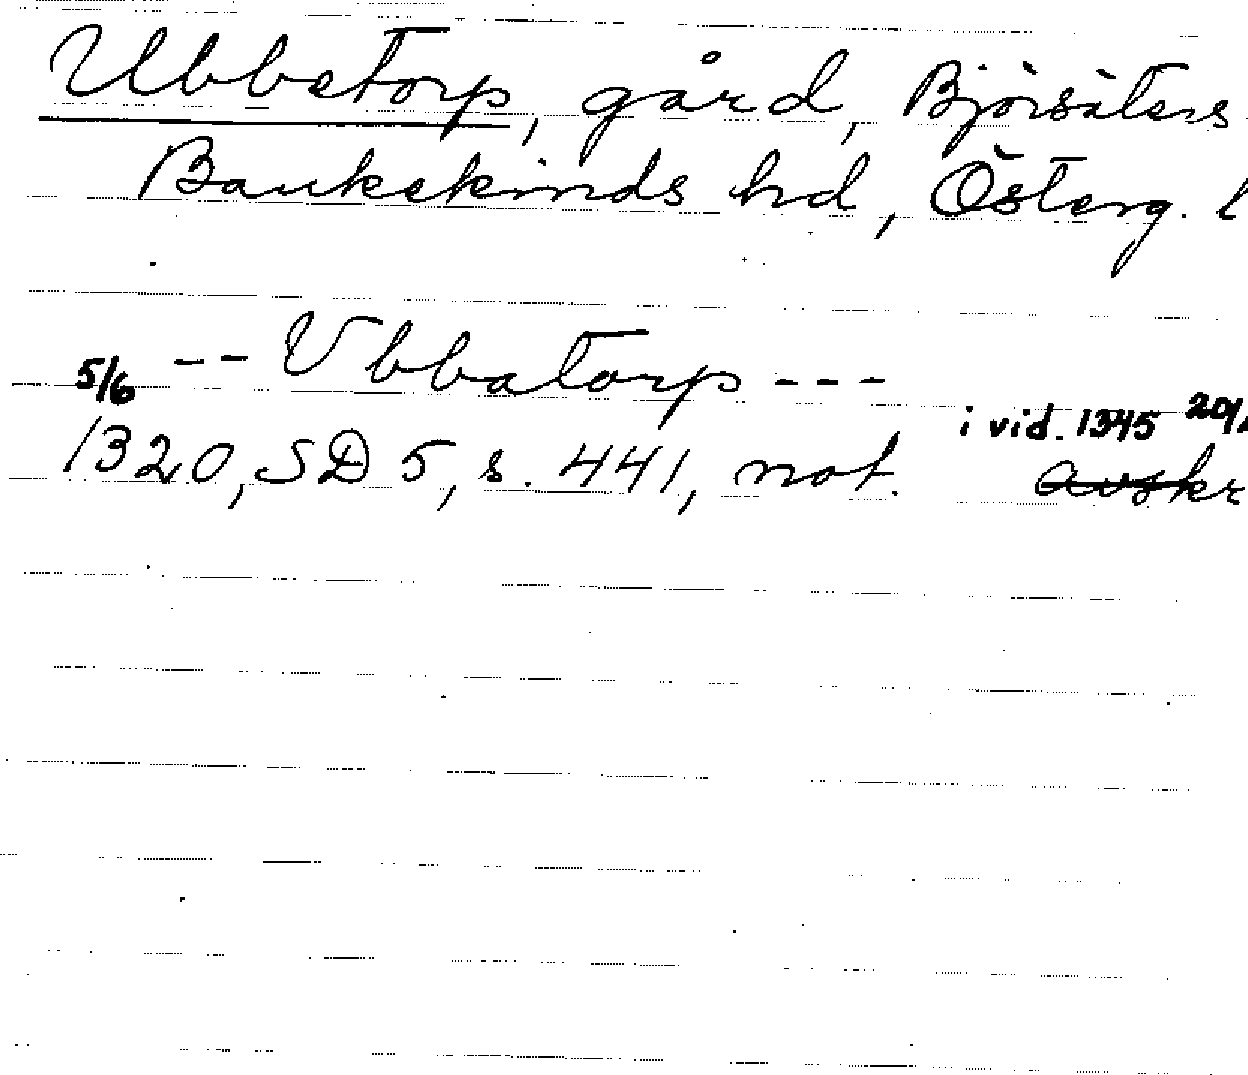 Ubbetorp, gård, Björsäters
Bankekinds hd, Österg. l
-- Vbbatorp ---
5/6
1320, SD 5, s. 441, not. i vid. 1345 20/
avskr